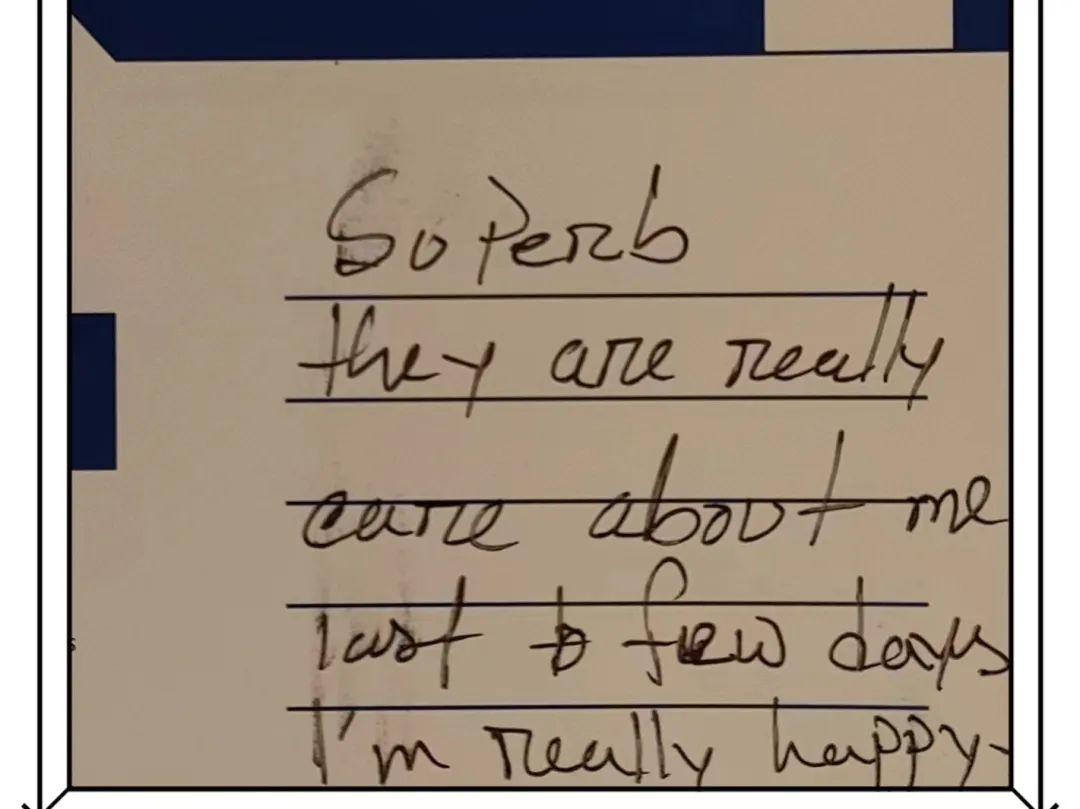 Soperb
they are really
care about me
last few days
I'm really happy-